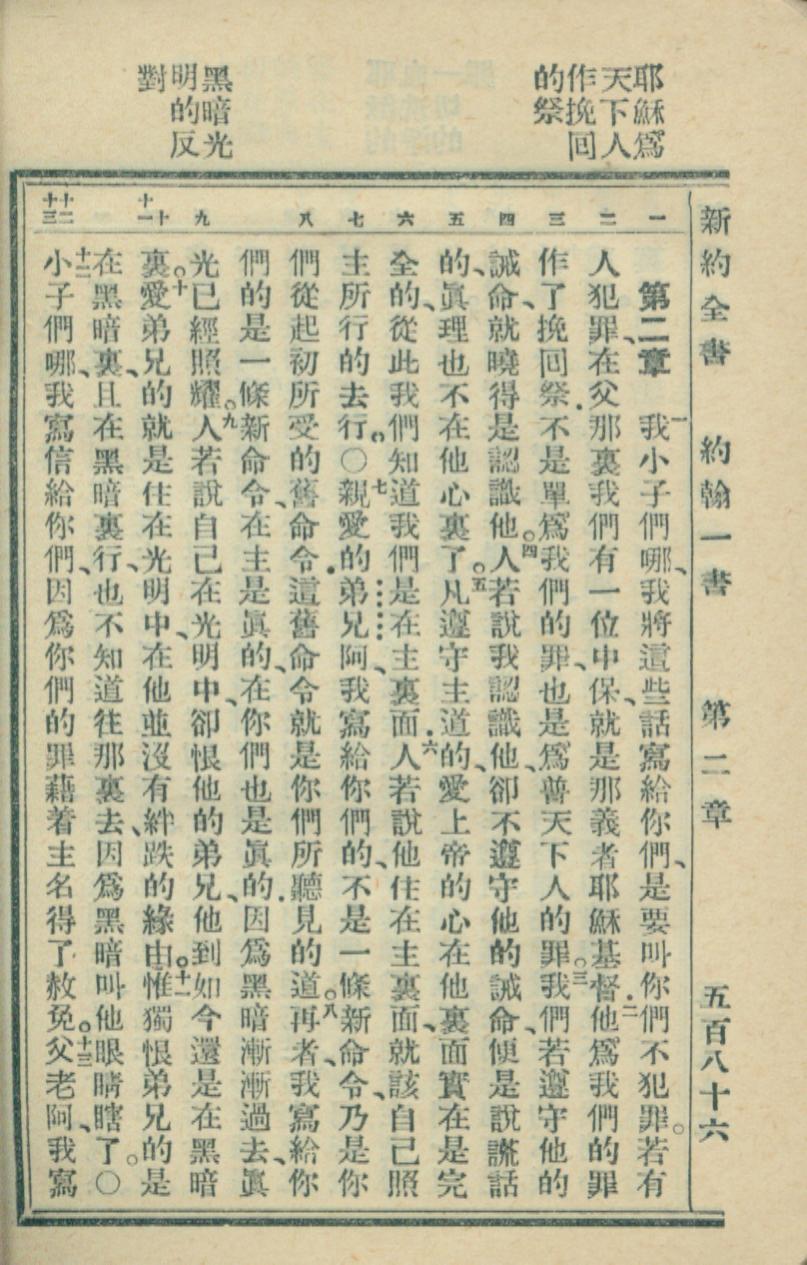 新約全書　約翰一書　第二章　五百八十六
耶穌爲
天下人
作挽回
的祭
黑暗光
明的反
對
一
二
三
四
五
六
七
八
九
十
十一
十二
十三
第二章　一我小子們哪、我將這些話寫給你們、是要叫你們不犯罪。若有
人犯罪、在父那裏我們有一位中保、就是那義者耶穌基督.二他爲我們的罪
作了挽回祭.不是單爲我們的罪、也是爲普天下人的罪。三我們若遵守他的
誡命、就曉得是認識他。四人若說我認識他、卻不遵守他的誡命、便是說謊話
的、眞理也不在他心裏了。五凡遵守主道的、愛上帝的心在他裏面實在是完
全的、從此我們知道我們是在主裏面.六人若說他住在主裏面、就該自己照
主所行的去行。○七親愛的弟兄阿、我寫給你們的、不是一條新命令、乃是你
們從起初所受的舊命令.這舊命令就是你們所聽見的道。八再者、我寫給你
們的是一條新命令、在主是眞的、在你們也是眞的.因爲黑暗漸漸過去、眞
光已經照耀。九人若說自己在光明中、卻恨他的弟兄、他到如今還是在黑暗
裏。十愛弟兄的就是住在光明中、在他並沒有絆跌的緣由。十一惟獨恨弟兄的是
在黑暗裏、且在黑暗裏行、也不知道往那裏去、因爲黑暗叫他眼睛瞎了。○
十二小子們哪、我寫信給你們、因爲你們的罪藉着主名得了赦免。十三父老阿、我寫